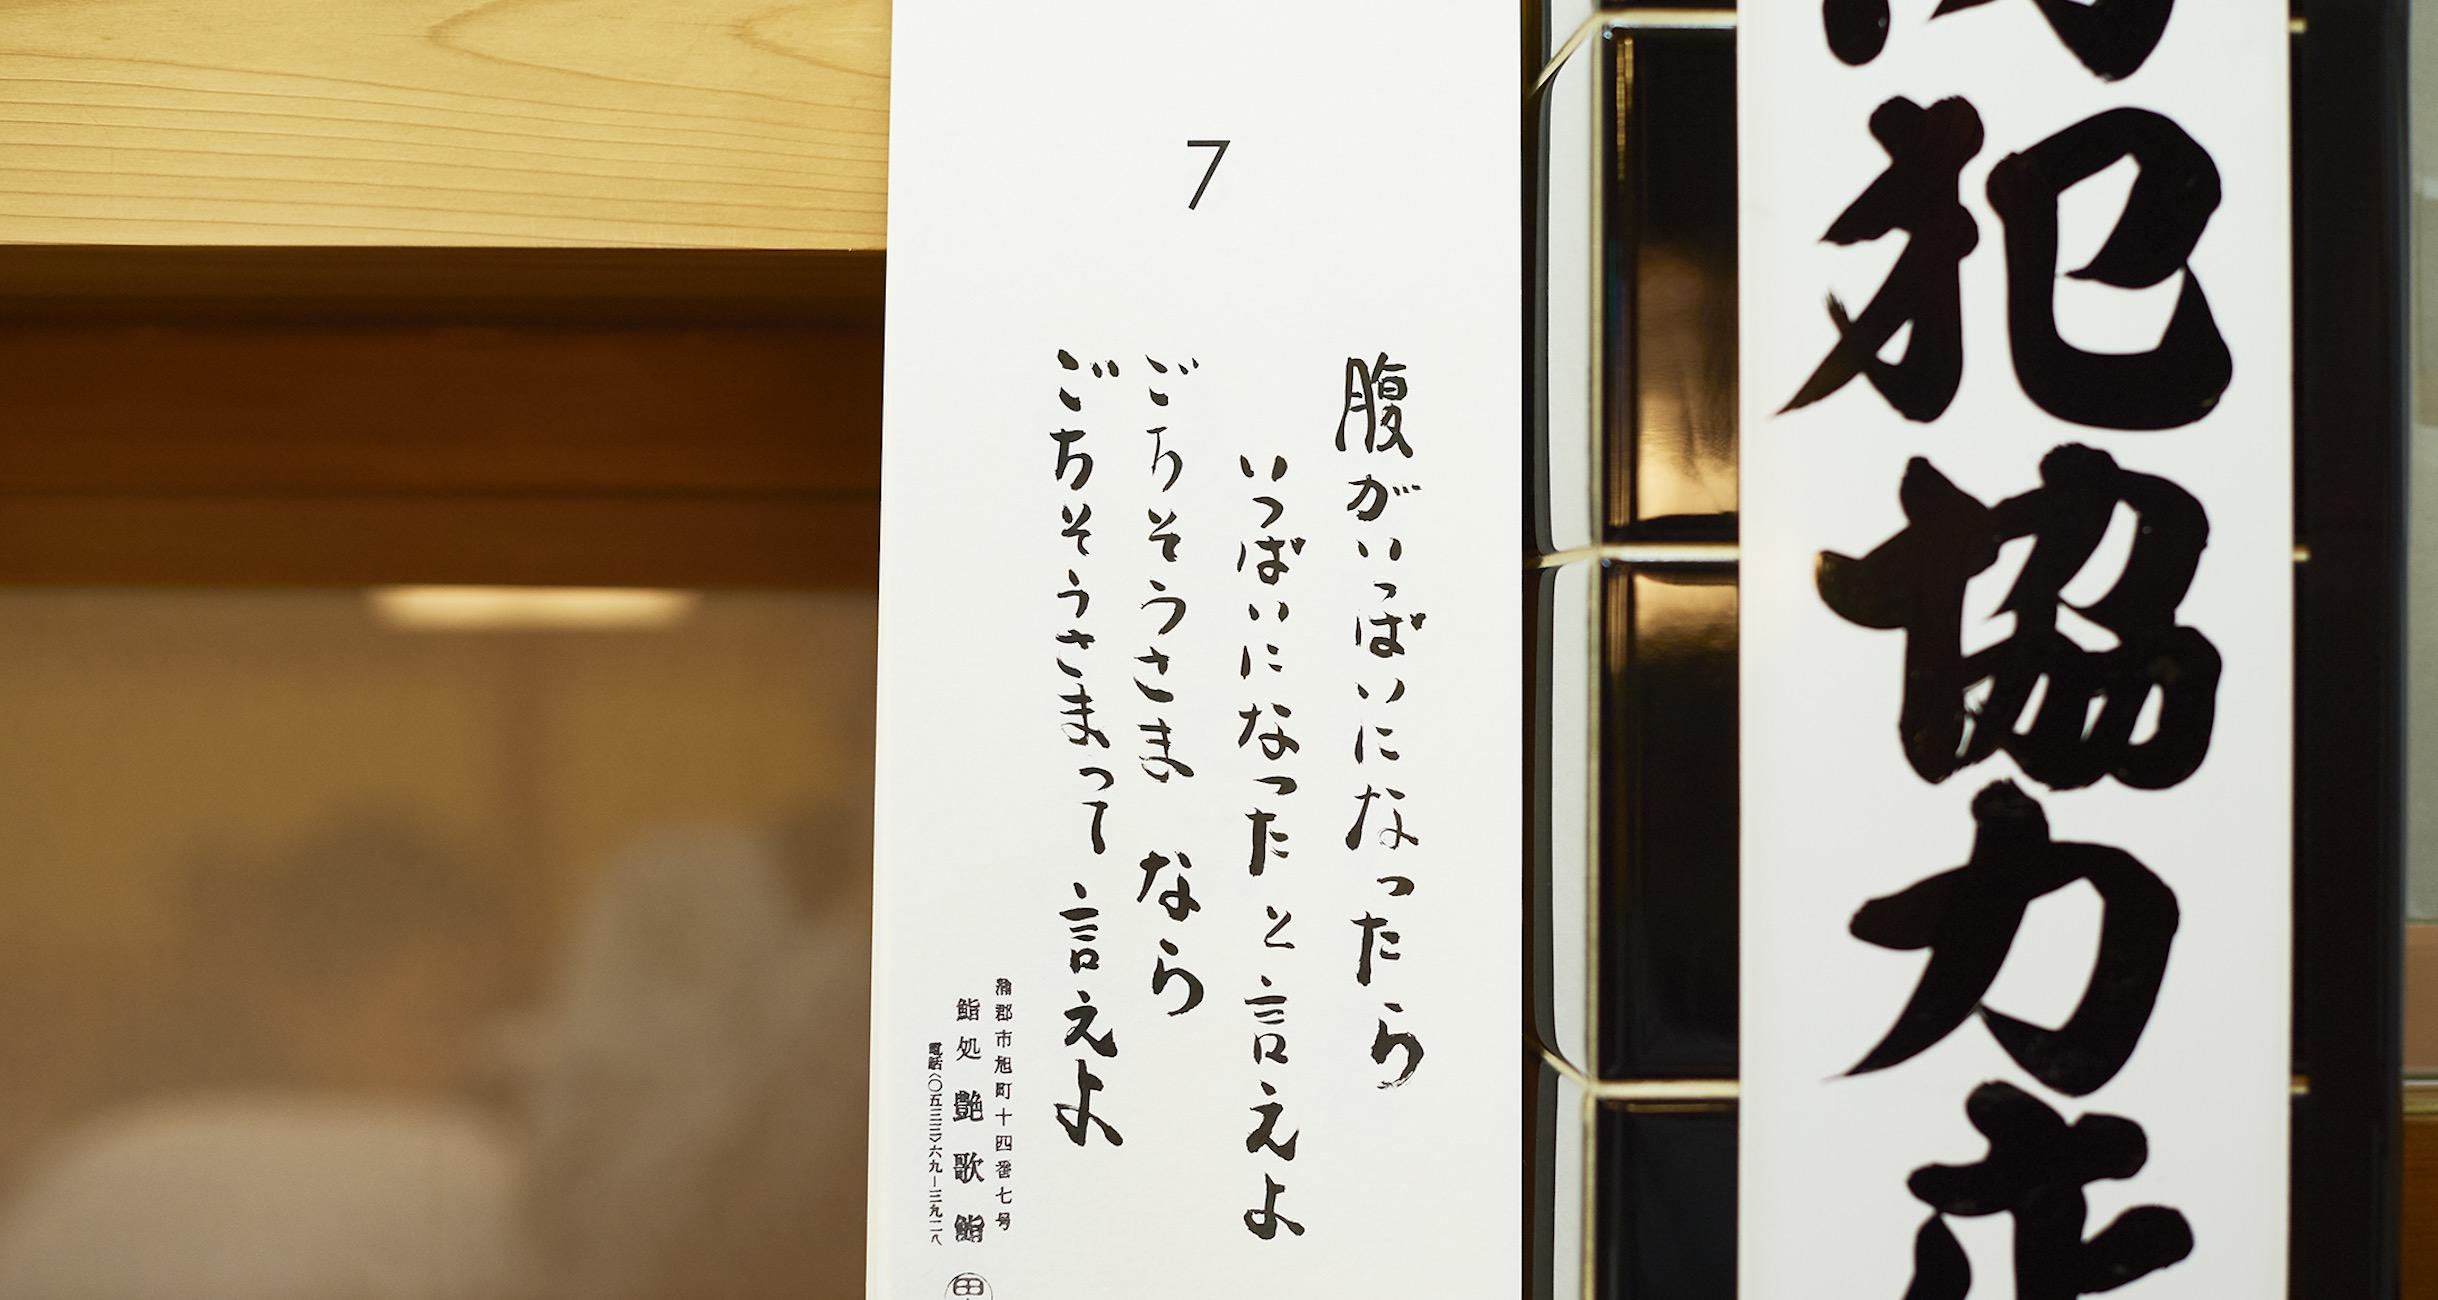 犯協力店
7
腹がいっぱいになったら
いっぱいになったと言えよ
ごちそうさま なら
ごちそうさまって 言えよ
蒲郡市旭町十四番七号
鮨処 艶歌鮨
電話〈〇五三三〉六九ー三九二八